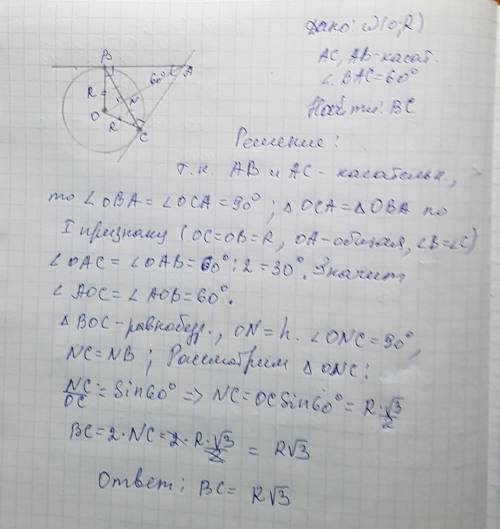 Дано: ω(O;R)
AC, AB-касат.
∠BAC=60°
Найти: BC
B
A
60°
R
O
N
R
C
Решение:
т.к. AB и AC - касательн.,
то ∠OBA=∠OCA=90°; △OCA=△OBA по
I признаку (OC=OB=R, OA-общая, ∠B=∠C)
∠OAC=∠OAB=60°:2=30°. Значит
∠AOC=∠AOB=60°.
△BOC-равнобедр., ON=h. ∠ONC=90°,
NC=NB; Рассмотрим △ONC:
NC/OC=Sin60° => NC=OCSin60°=R·√3/2
BC=2·NC=2·R·√3/2=R√3
Ответ: BC=R√3